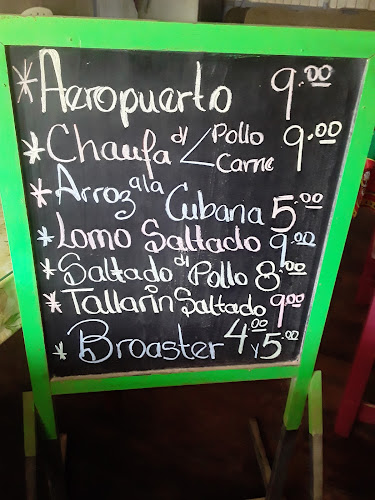 * Aeropuerto 9.00
* Chaufa d/ < Pollo 9.00
Carne
* Arroz a la Cubana 5.00
* Lomo Saltado 9.00
* Saltado d/ Pollo 8.00
* Tallarin Saltado 9.00
* Broaster 4.00 y 5.00